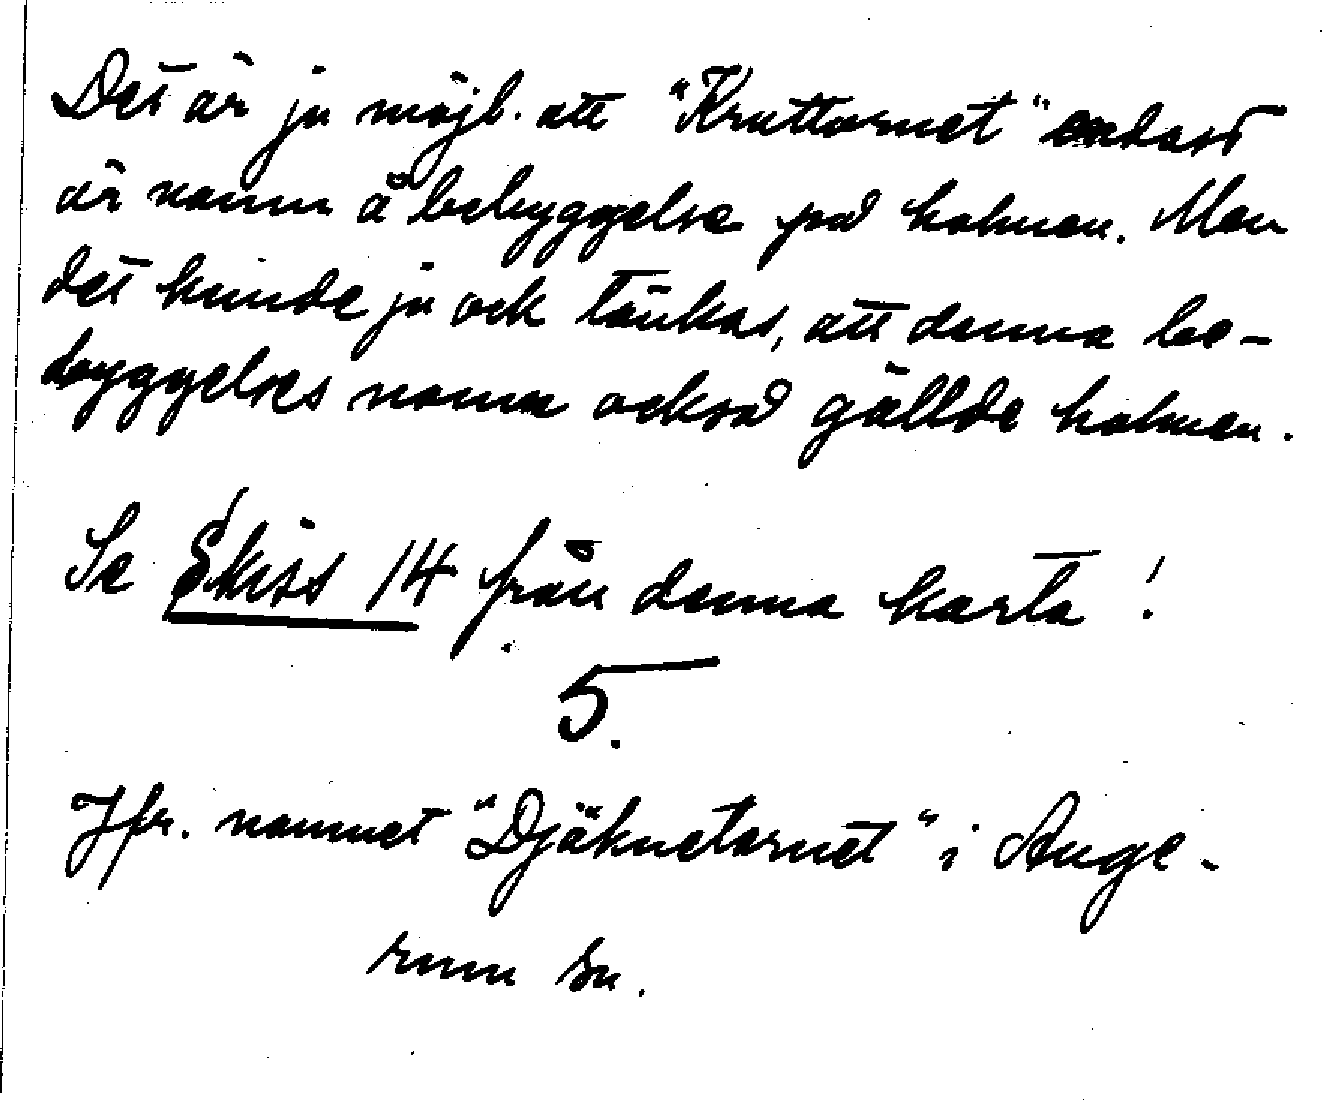 Det är ju möjl. att "Kruttornet" endast
är namn å bebyggelse på holmen. Men
det kunde ju ock tänkas, att denna be-
byggelses namn också gällde holmen.
Se Skiss 14 från denna karta!
5.
Jfr. namnet "Djäknetornet" i Ange-
rum sn.